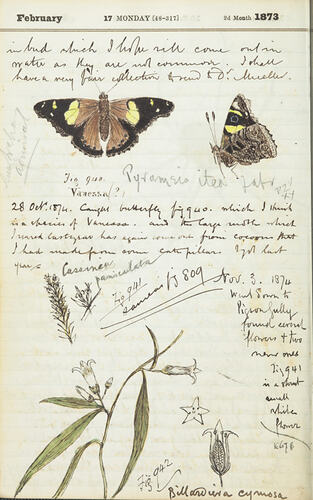 February 17 MONDAY (48-317) 2d Month 1873
in bud which I hope will come out in
water as they are not common. I shall
have a very fair collection to send to Dr. Mueller.
Fig 940.
Vanessa (?)
Pyrameis itea Fabr
28 Oct. 1874. Caught butterfly fig 940. which I think
is a species of Vanessa. and the large moth which
I reared last year has again come out from cocoons that
I had made from some caterpillar. I got last
year.
Caesia
paniculata
Fig 941
same as fig 809
Nov. 3. 1874
Went down to
Pigeon Gully
found several
flowers & two
new ones
Fig 941
is a
small
white
flower
Fig 942
Billardiera cymosa